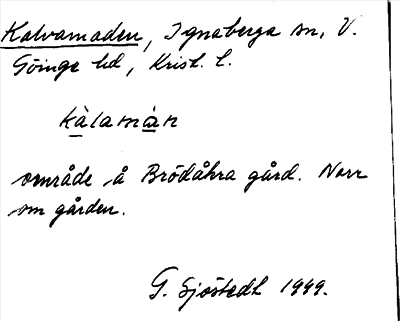 Kalvamaden, Ignaberga sn, V.
Göinge hd, Krist. l.
kàlamàn
område å Brödåkra gård. Norr
om gården.
G. Sjöstedt 1949.